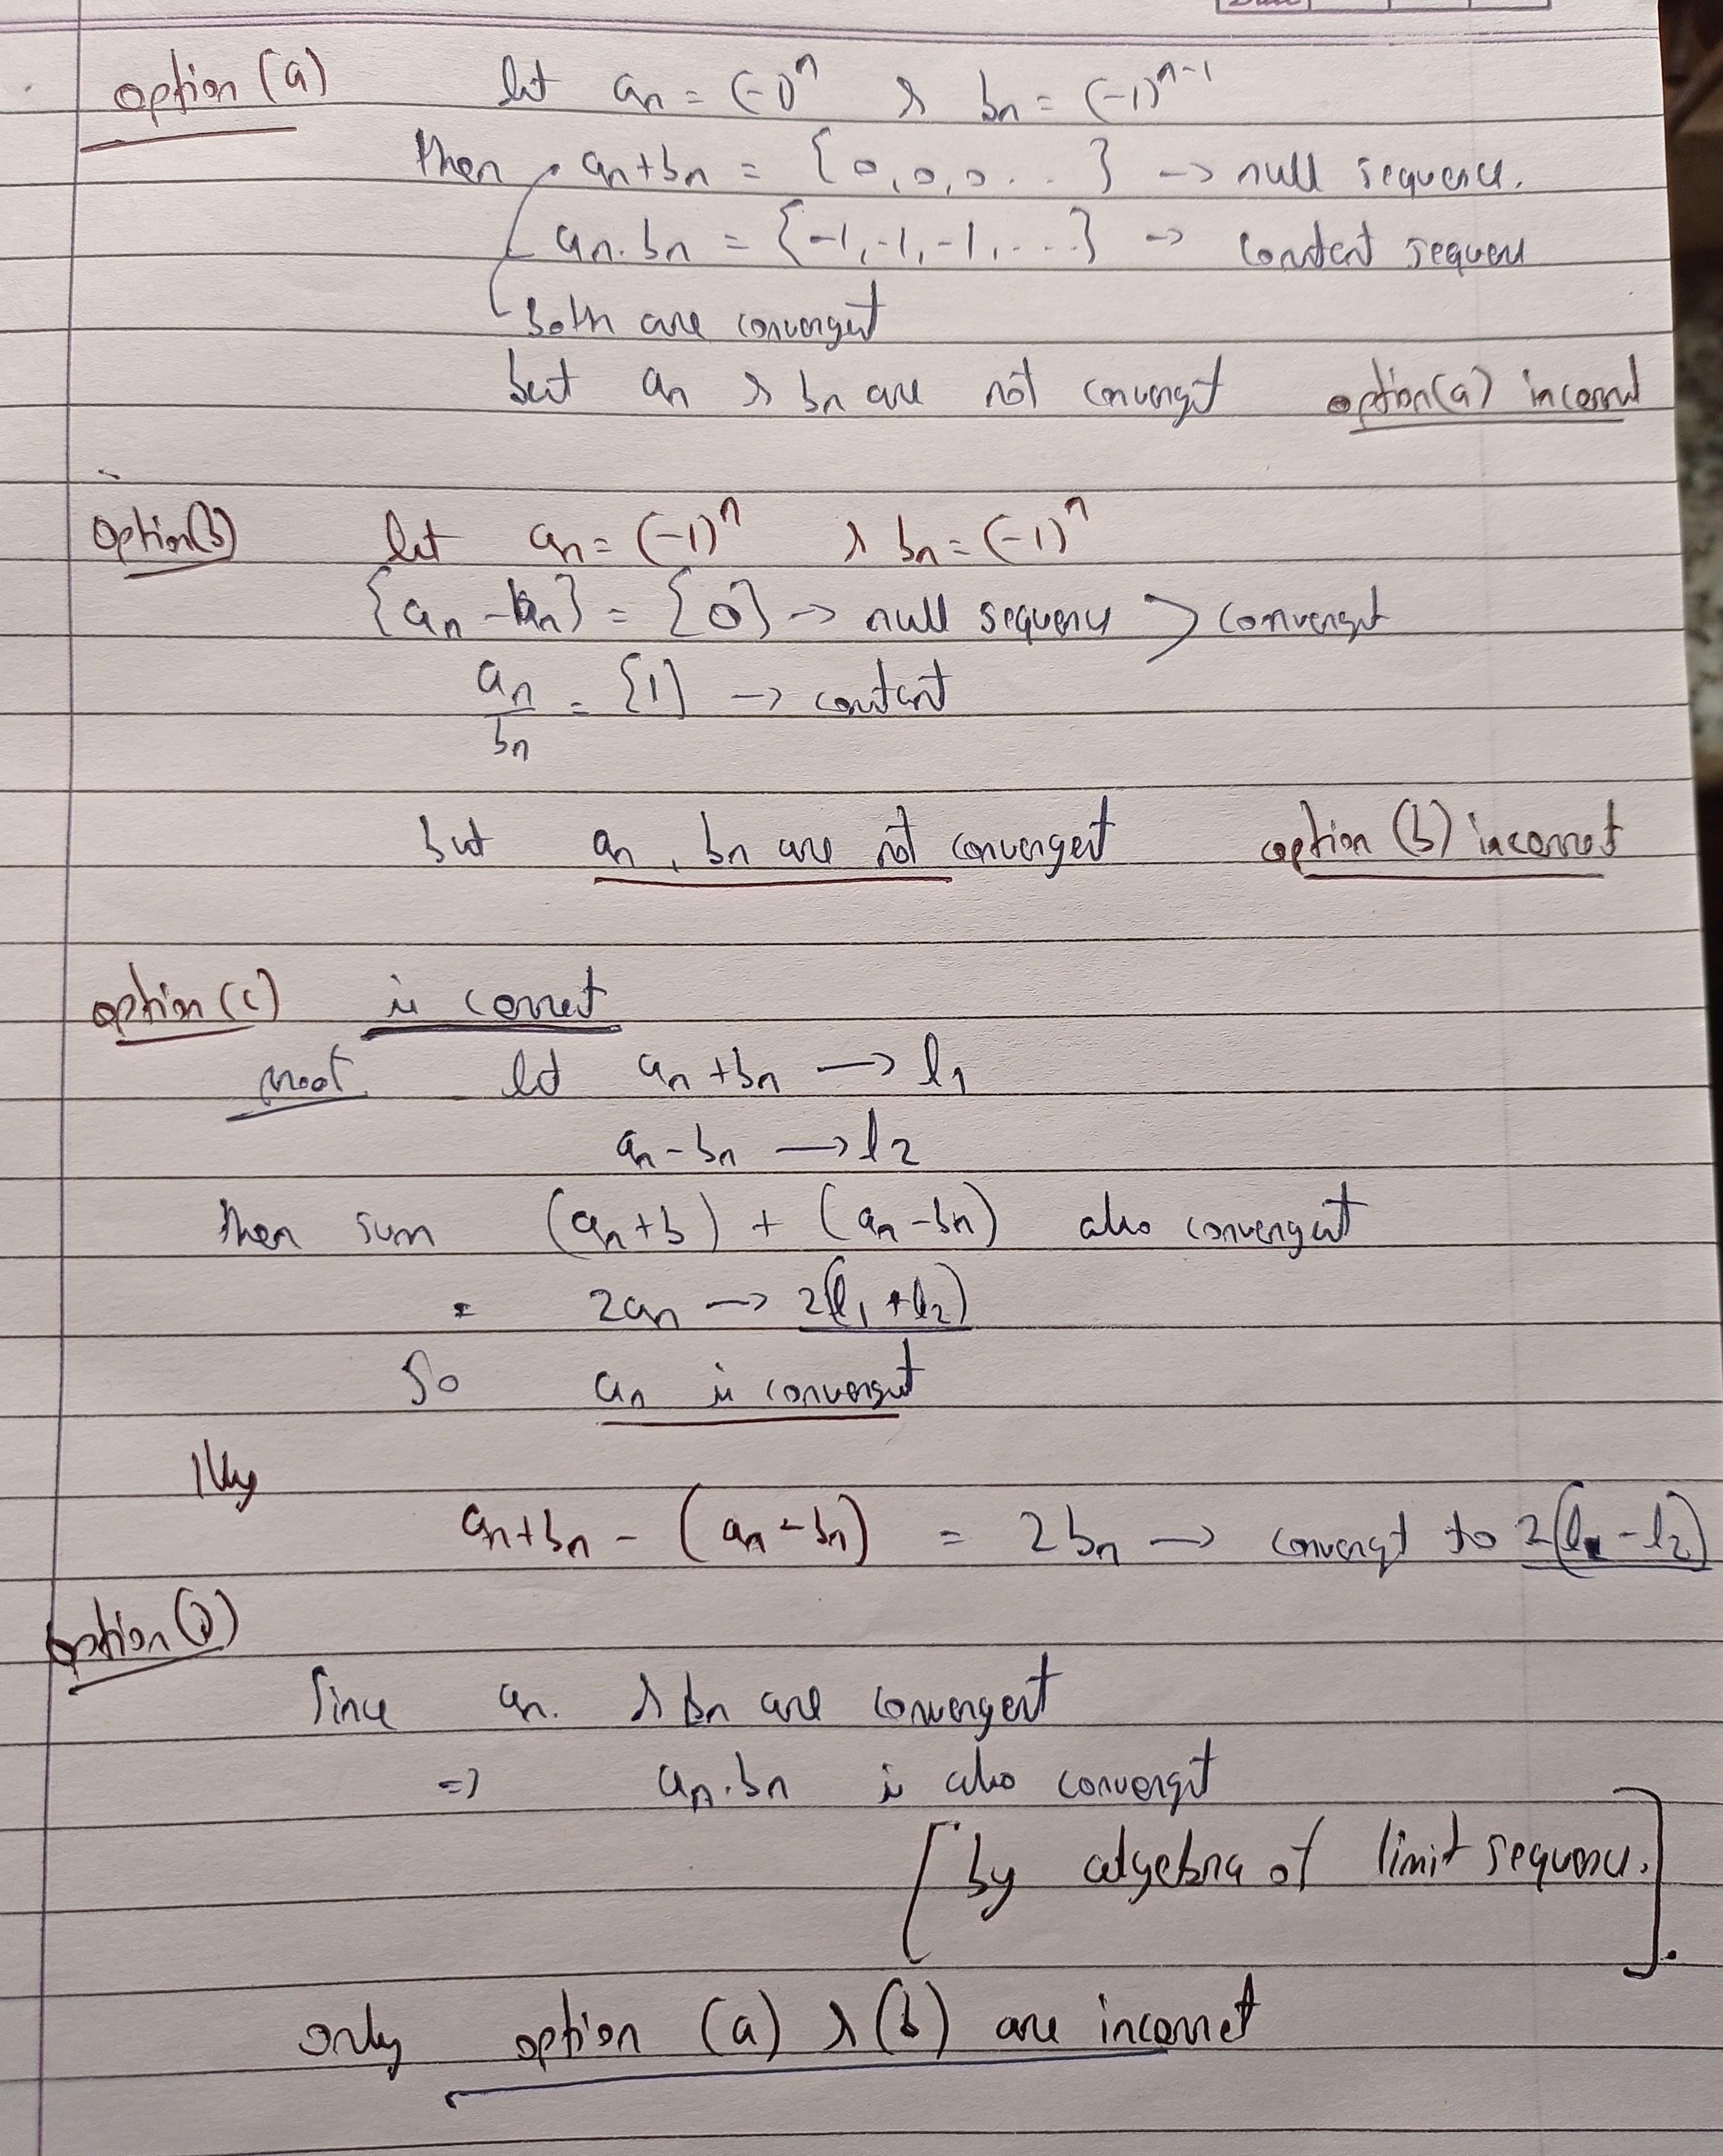 Date
option (a) let an = (-1)^n & bn = (-1)^n-1
then an+bn = {0,0,0...} -> null sequence.
an.bn = {-1,-1,-1,...} -> constent sequence
both are convergent
but an & bn are not convergent option(a) incorrect
option(b) let an = (-1)^n & bn = (-1)^n
{an - bn} = {0} -> null sequence > convergent
an/bn = {1} -> constant
but an, bn are not convergent option (b) incorrect
option (c) is correct
proof. let an + bn -> l1
an - bn -> l2
then sum (an + b) + (an - bn) also convergent
= 2an -> 2(l1 + l2)
So an is convergent
llly
an+bn - (an - bn) = 2bn -> convergt to 2(l1 - l2)
option (d)
Since an. & bn are convergent
=> an.bn is also convergent
[by algebra of limit sequence.].
only option (a) & (b) are incorrect